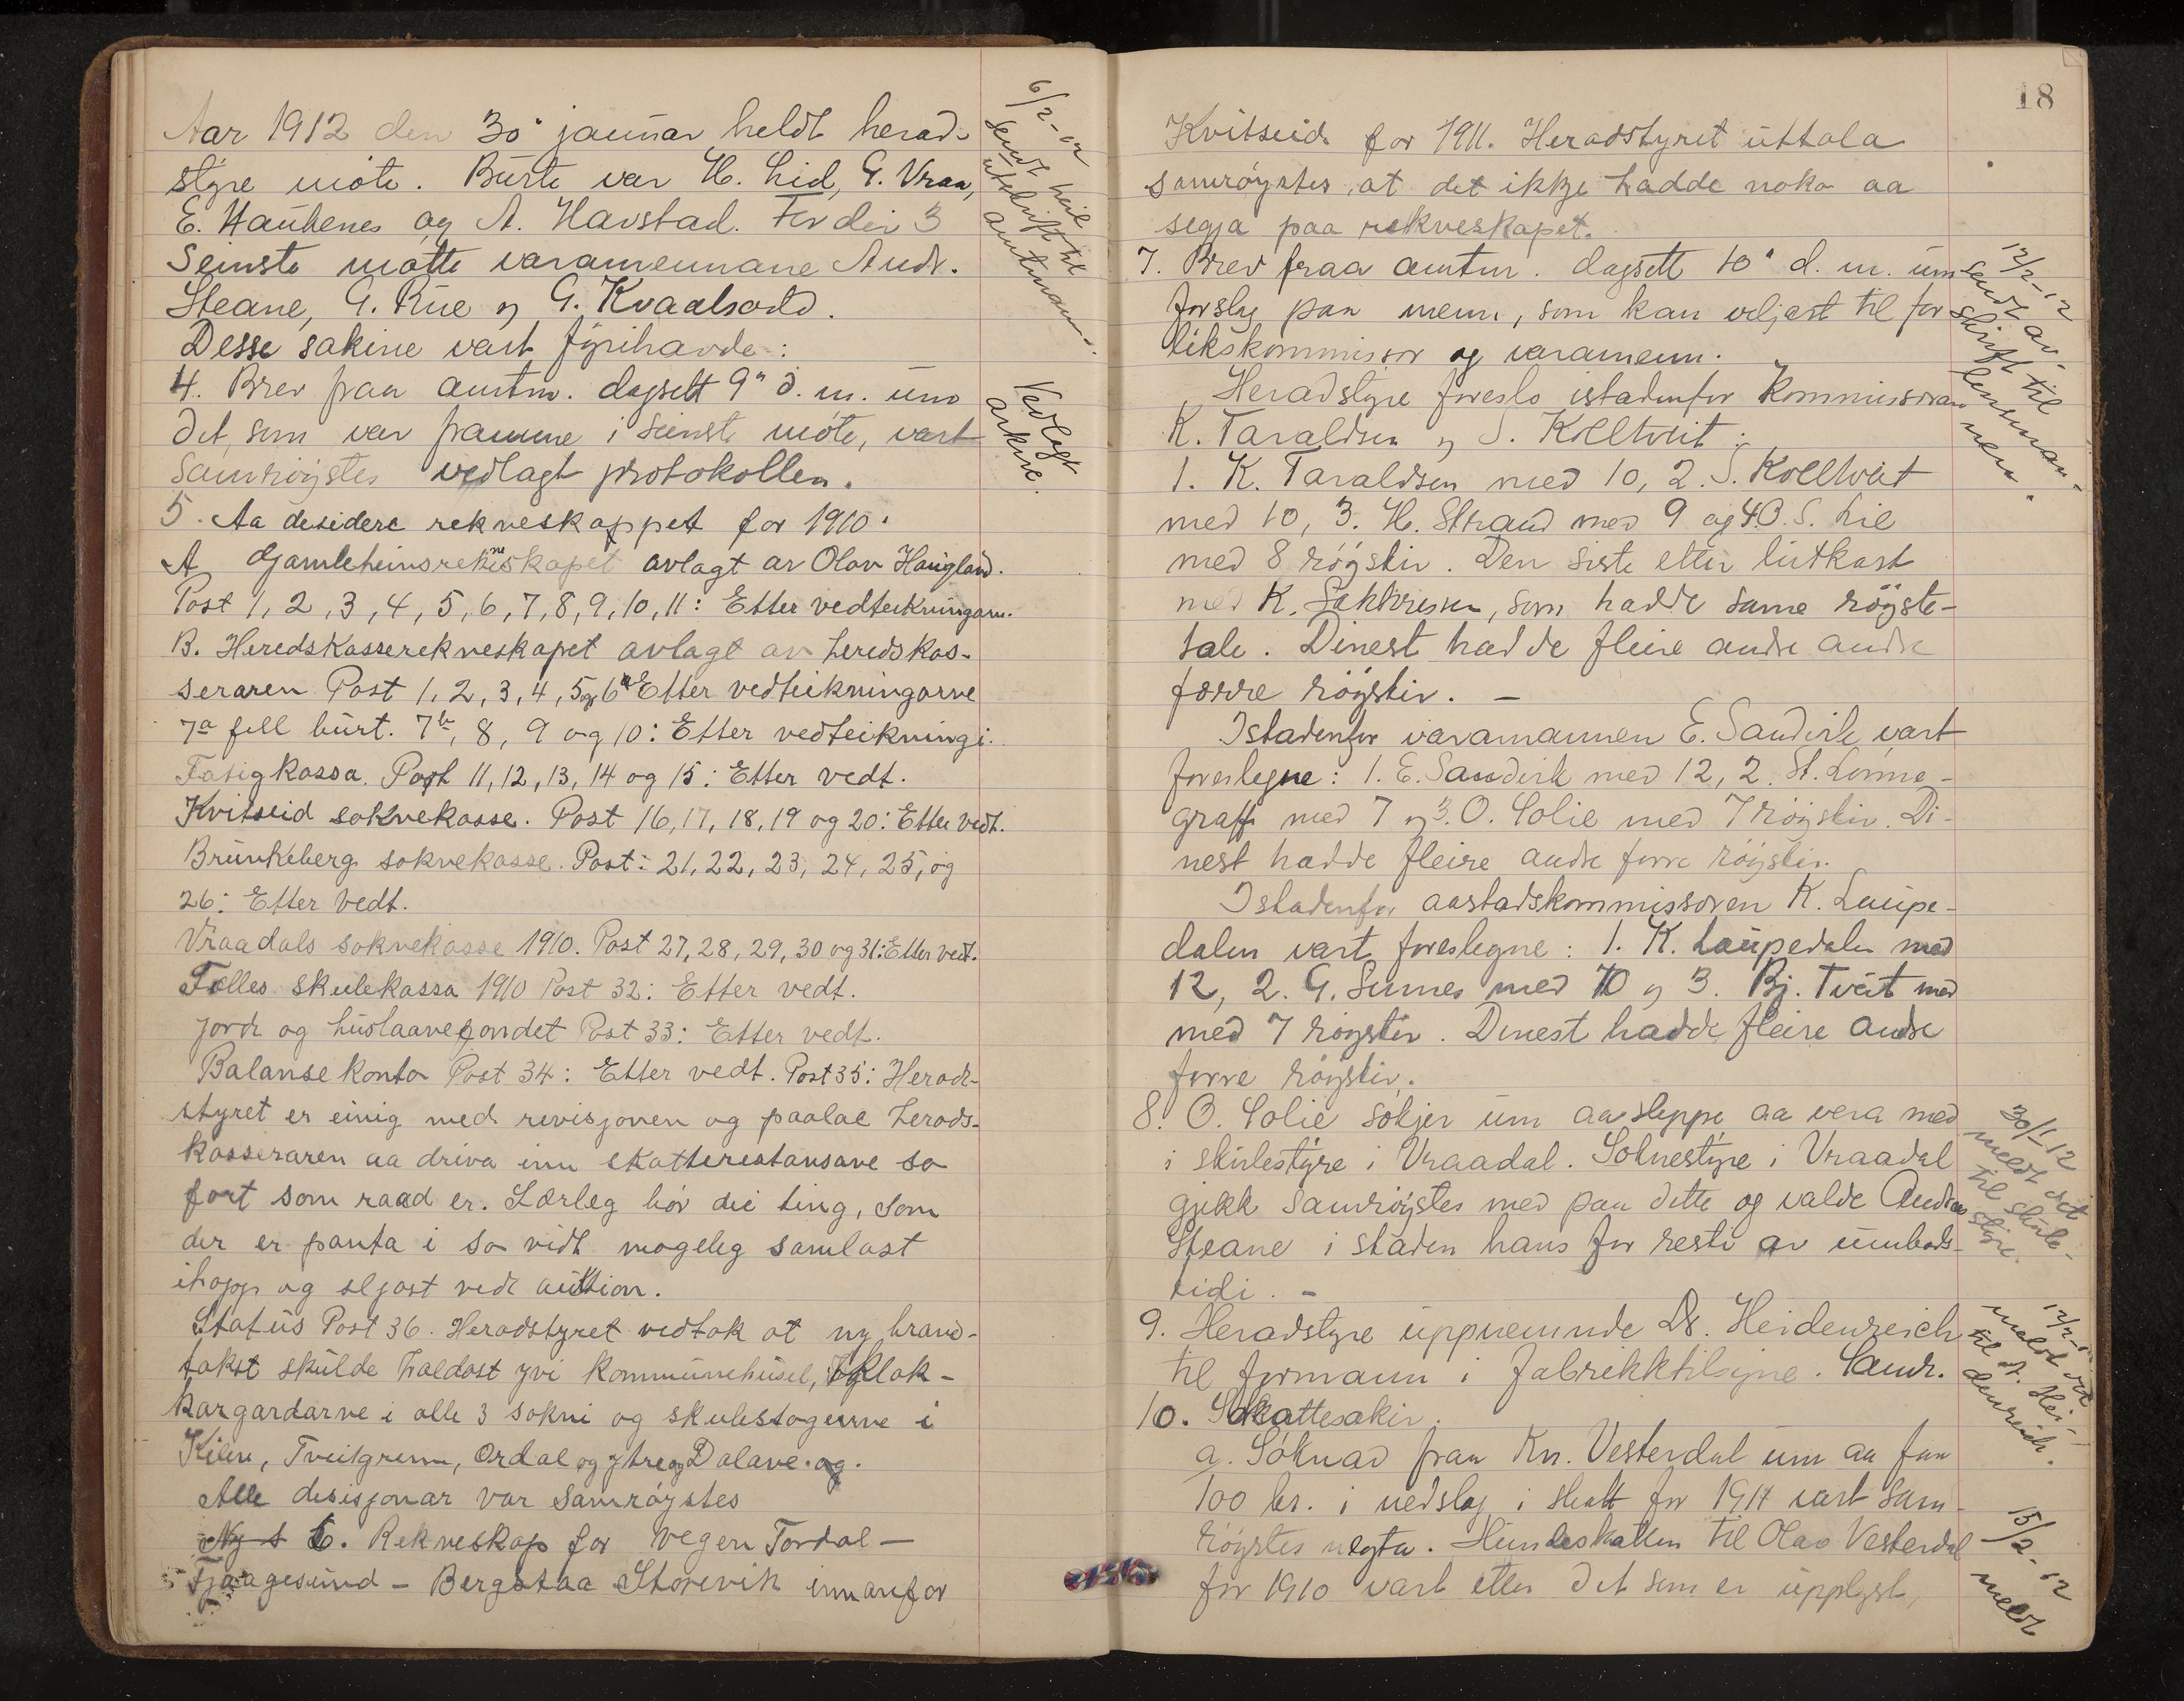 Aar 1912 den 30' januar heldt herad-
styre møte. Burte var H. Lid, G. Vraa,
E. Haukenes og A. Havstad. For dei 3
Seinste møtte varamennane Andr.
Steane, G. Rue og G. Kvaalsodd.
Desse sakine vart fyrihavde:
4. Brev fraa amtm. dagsett 9" d. m. um
det, som var framme i seinste møte, vart
samrøystes vedlagt protokollen.
5. Aa desidere rekneskappet for 1910.
A Gamleheimsrekneskapet avlagt av Olav Haugland.
Post 1, 2, 3, 4, 5, 6, 7, 8, 9, 10, 11: Etter vedteikningarn.
B. Heredskasserekneskapet avlagt av heredskas-
seraren Post 1, 2, 3, 4, 5 og 6 Etter vedteikningarne
7a fell burt. 7b, 8, 9 og 10: Etter vedteikningi.
Fatigkassa. Post 11, 12, 13, 14 og 15: Etter vedt.
Kvitseid soknekasse. Post 16, 17, 18, 19 og 20: Etter vedt.
Brunkeberg soknekasse. Post: 21, 22, 23, 24, 25, og
26: Etter vedt.
Vraadals soknekasse 1910. Post 27, 28, 29, 30 og 31: Etter vedt.
Felles skulekassa 1910 Post 32: Etter vedt.
Jord og huslaanefondet Post 33: Etter vedt.
Balanse konto Post 34: Etter vedt. Post 35: Herad-
styret er einig med revisjonen og paalae herads-
kasseraren aa driva inn skatterestansane so
fort som raad er. Særleg bør dei ting, som
der er panta i so vidt mogeleg samlast
ihopp og seljast ved auktion.
Status Post 36. Heradstyret vedtok at ny brand-
takst skulde haldast yvi kommunehuset, klok-
kargardarne i alle 3 sokni og skulestogurne i
Kilen, Tveitgrenn, Ordal og ytre og Dalane.
Alle desisjonar var samrøystes
6. Rekneskap for vegen Tordal –
Fjaagesund – Bergstaa Storevik innanfor
6/2-12
Sendt heil
utskrift til
amtmann.
Vedlagt
arkive.
18
Kvitseid for 1911. Heradstyret uttala
samrøystes, at det ikkje hadde noko aa
segja paa rekneskapet.
7. Brev fraa amtm. dagsett 10" d. m. um
forslag paa menn, som kan veljast til for
likskommissær og varamenn.
Heradstyre foreslo istadenfor Kommissæran
K. Taraldsen og S. Kolltveit:
1. K. Taraldsen med 10, 2. S. Kolltveit
med 10, 3. H. Strand med 9 og 4. O. S. Lie
med 8 røystir. Den siste etter lutkast
med K. , som hadde same røyste-
tale. Dinest hadde fleire andre andre
færre røystir. –
Istadenfor varamannen E. Sandvik vart
foreslegne: 1. E. Sandvik med 12, 2. St. Lønne-
graff med 7 og 3. O. Solie med 7 røystir. Di-
nest hadde fleire andre færre røystir.
Istadenfor aastadskommissæren K. Laupe-
dalen vart foreslegne: 1. K. Laupedalen med
12, 2. G. Sunnes med 10 og 3. Bj. Tveit med
med 7 røystir. Dinest hadde fleire andre
færre røystir.
8. O. Solie søkjer um aa sleppe aa vera med
i skulestyre i Vraadal. Soknestyre i Vraadal
gjekk samrøystes med paa dette og valde Andreas
Steane i staden hans for resti av umbods-
tidi. –
9. Heradstyre uppnemnde Dr. Heidenreich
til formann i fabrikktilsyne. Samr.
10. Skattesakir.
a. Søknad fraa Kn. Vesterdal um aa faa
100 kr. i nedslag i skatt for 1911 vart sam-
røystes negta. Hundeskatten til Olav Vesterdal
for 1910 vart etter det som er upplyst,
12/2-12
Sendt av-
skrift til
lensman-
nen.
30/11-12
meldt det
til skule-
styre.
12/2-12
meldt det
til dr. Hei-
denreich.
15/2-12
meldt